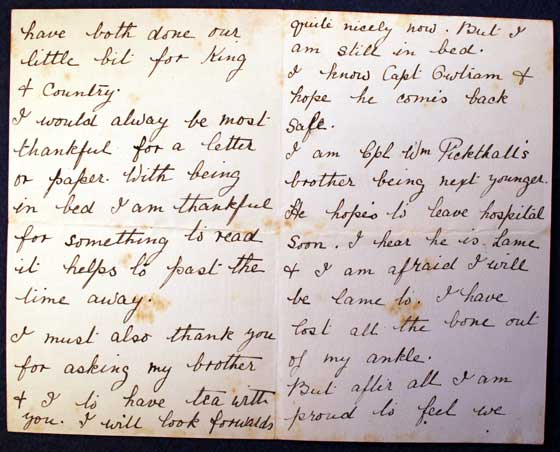 quite nicely now. But I
am still in bed.
I know Capt Owtram &
hope he comes back
safe.
I am Cpl Wm Pickthall's
brother being next younger.
He hopes to leave hospital
soon. I hear he is Lame
& I am afraid I will
be lame to. I have
lost all the bone out
of my ankle.
But after all I am
proud to feel we
have both done our
little bit for King
& Country.
I would alway be most
thankful for a letter
or paper. With being
in bed I am thankful
for something to read
it helps to past the
time away.
I must also thank you
for asking my brother
& I to have tea with
you. I will look forwards